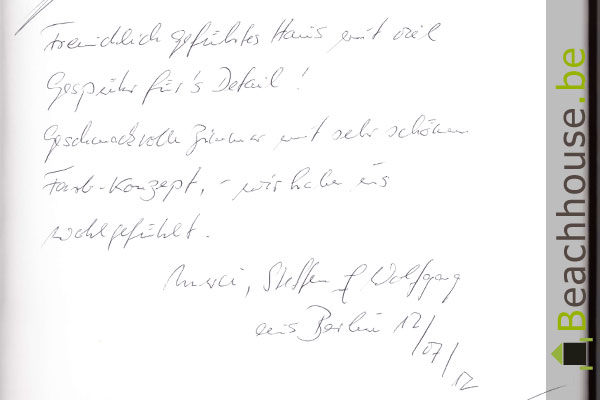 Freundlich geführtes Haus mit viel
Gespühr für's Detail!
Geschmackvolle Zimmer mit sehr schönem
Farb-Konzept, - wir haben uns
wohlgefühlt.
Merci, Steffen & Wolfgang
aus Berlin 12/07/12
Beachhouse.be